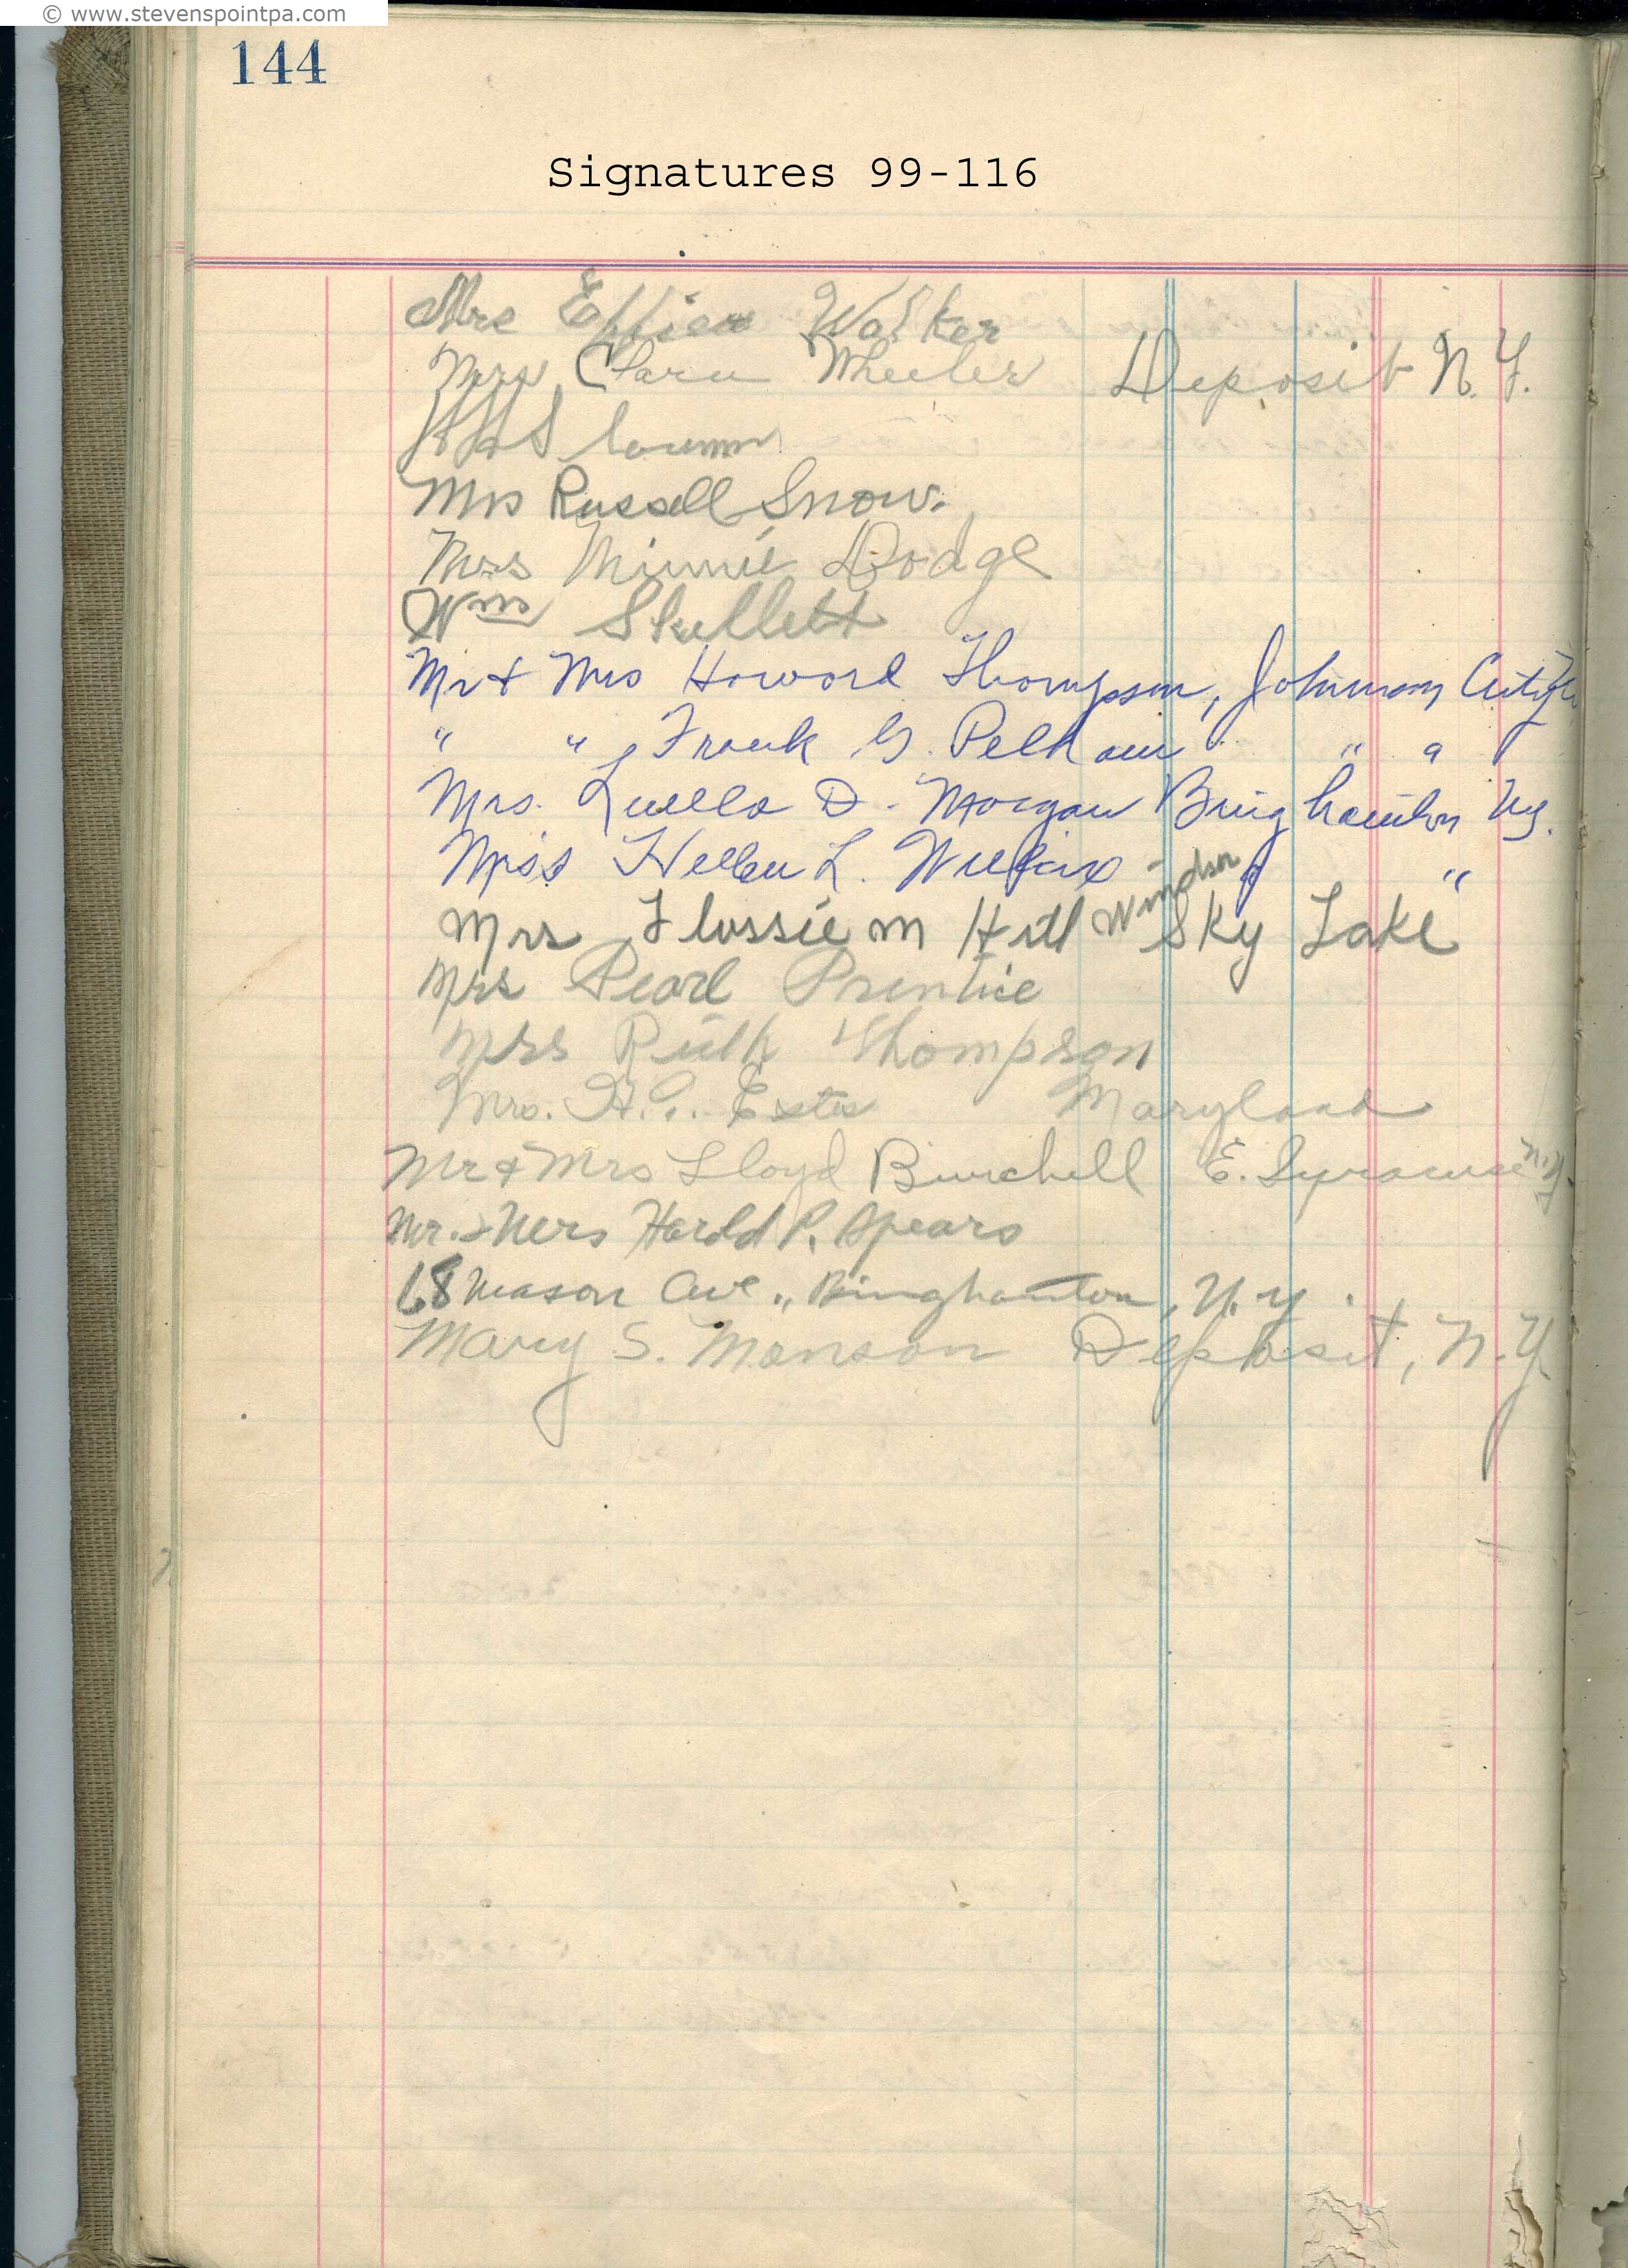 © www.stevenspointpa.com
144
Signatures 99-116
Mrs Effie Walker
Mrs Clara Wheeler Deposit N.Y.
Slocumm
Mrs Russell Snow.
Mrs Minnie Dodge
Wm Skellett
Mr & Mrs Howard Thompson, Johnson City
" " Frank G. Pelham " "
Mrs. Luella D. Morgan Binghamton Ny.
Miss Hellen L. Wilcox " "
Mrs Flossie M Hill Windsor Sky Lake
Mrs Pearl Prentice
Mrs Ruth Thompson
Mrs. Estes Maryland
Mr & Mrs Lloyd Burchell E. Syracuse N.Y.
Mr. & Mrs Harold P. Spears
68 Mason Ave., Binghamton, N.Y.
Mary S. Manson Deposit, N.Y.